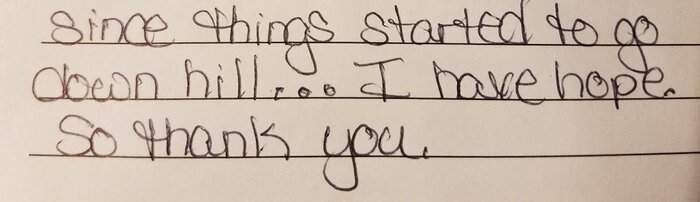 since things started to go
down hill... I have hope.
So thank you.